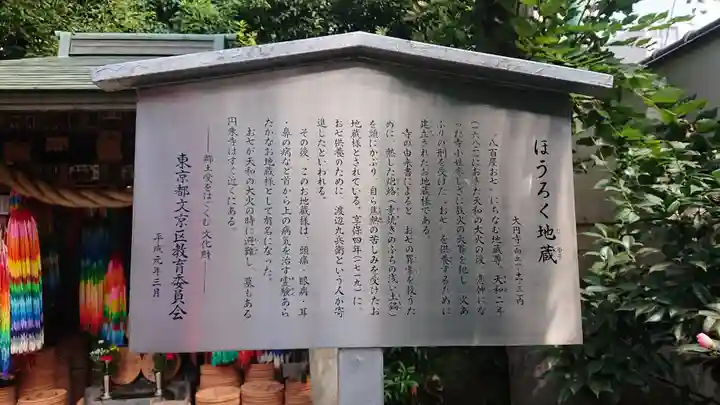 ほうろく地蔵
大円寺 内
八百屋お七 にちなむ地蔵尊。天和二年
(一六八二)におきた天和の大火の後、恋仲にな
った寺小姓恋しさに放火の大罪を犯し 火あ
ぶりの刑を受けた お七 を供養するために
建立されたお地蔵様である。
寺の由来書によると お七の罪業を救うた
めに 熱した焙烙(素焼きのふちの浅い土鍋)
を頭にかぶり 自ら焦熱の苦しみを受けたお
地蔵様とされている。享保四年(一七一九)に、
お七供養のために 渡辺九兵衛という人が寄
進したといわれる。
その後、このお地蔵様は 頭痛・眼病・耳
・鼻の病など首から上の病気を治す霊験あら
たかなお地蔵様として有名になった。
お七が天和の大火の時に避難し 墓もある
円乗寺はすぐ近くにある。
―郷土愛をはぐくむ文化財―
東京都文京区教育委員会
平成元年三月